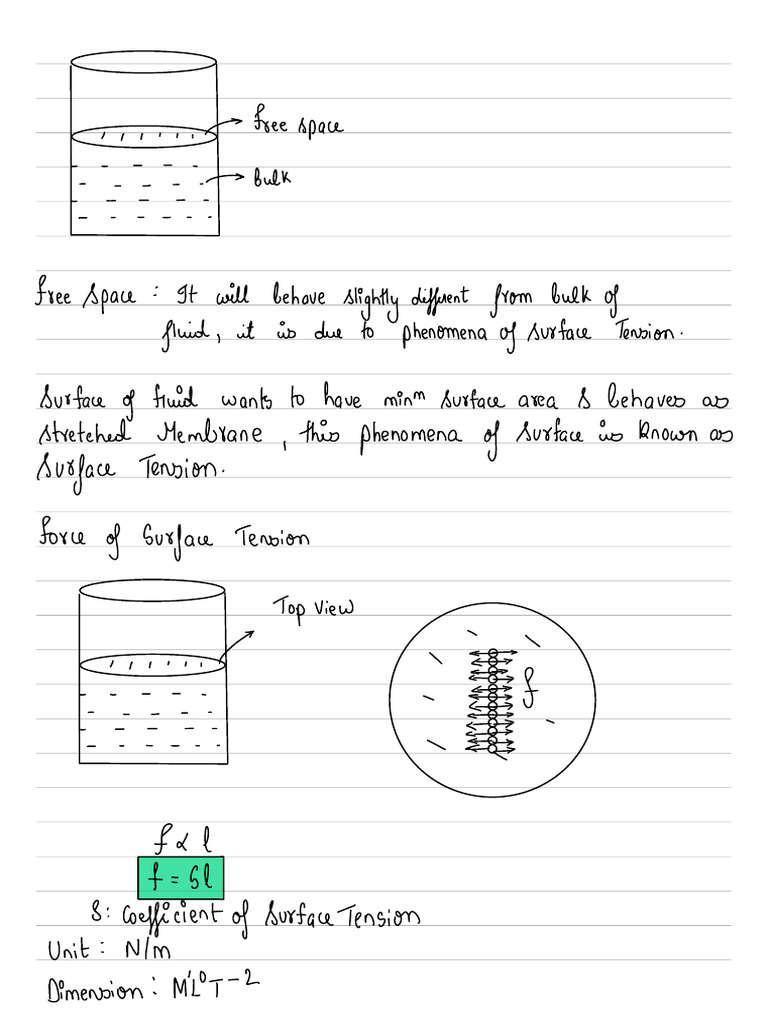 free space
Bulk
free space : It will behave slightly diffuent from bulk of
fluid, it is due to phenomena of surface Tension.
Surface of fluid wants to have minᵐ surface area & behaves as
stretched Membrane, this phenomena of surface is known as
Surface Tension.
force of Surface Tension
Top View
f
f ∝ l
f = Sl
S: Coefficient of Surface Tension
Unit : N/m
Dimension : M¹L⁰T⁻²